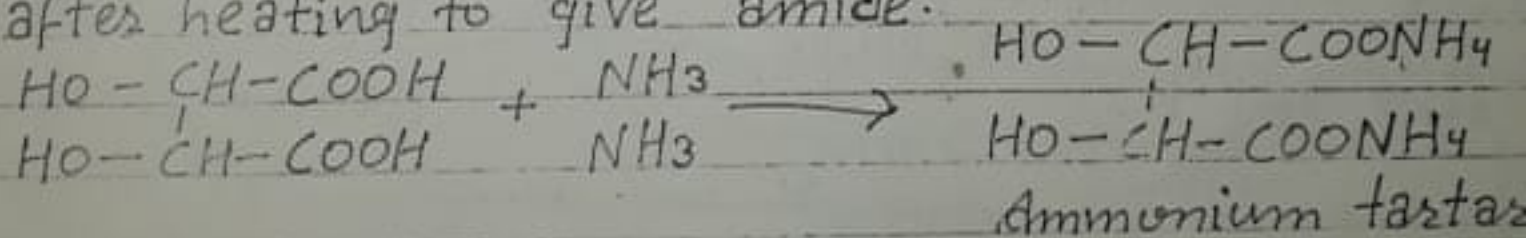 after heating to give amide.
HO - CH-COOH + NH3 → HO - CH-COONH4
HO - CH-COOH NH3 HO - CH-COONH4
Ammonium tartar